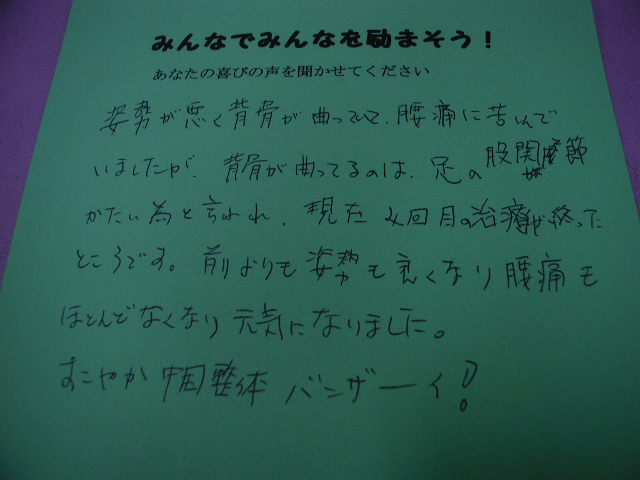 みんなでみんなを励まそう！
あなたの喜びの声を聞かせてください
姿勢が悪く背骨が曲っていて、腰痛に苦しんで
いましたが、背骨が曲ってるのは、足の股関節
がかたい為と言われ、現在4回目の治療が終った
ところです。前よりも姿勢も良くなり腰痛も
ほとんどなくなり元気になりました。
すこやか 整体 バンザーイ!